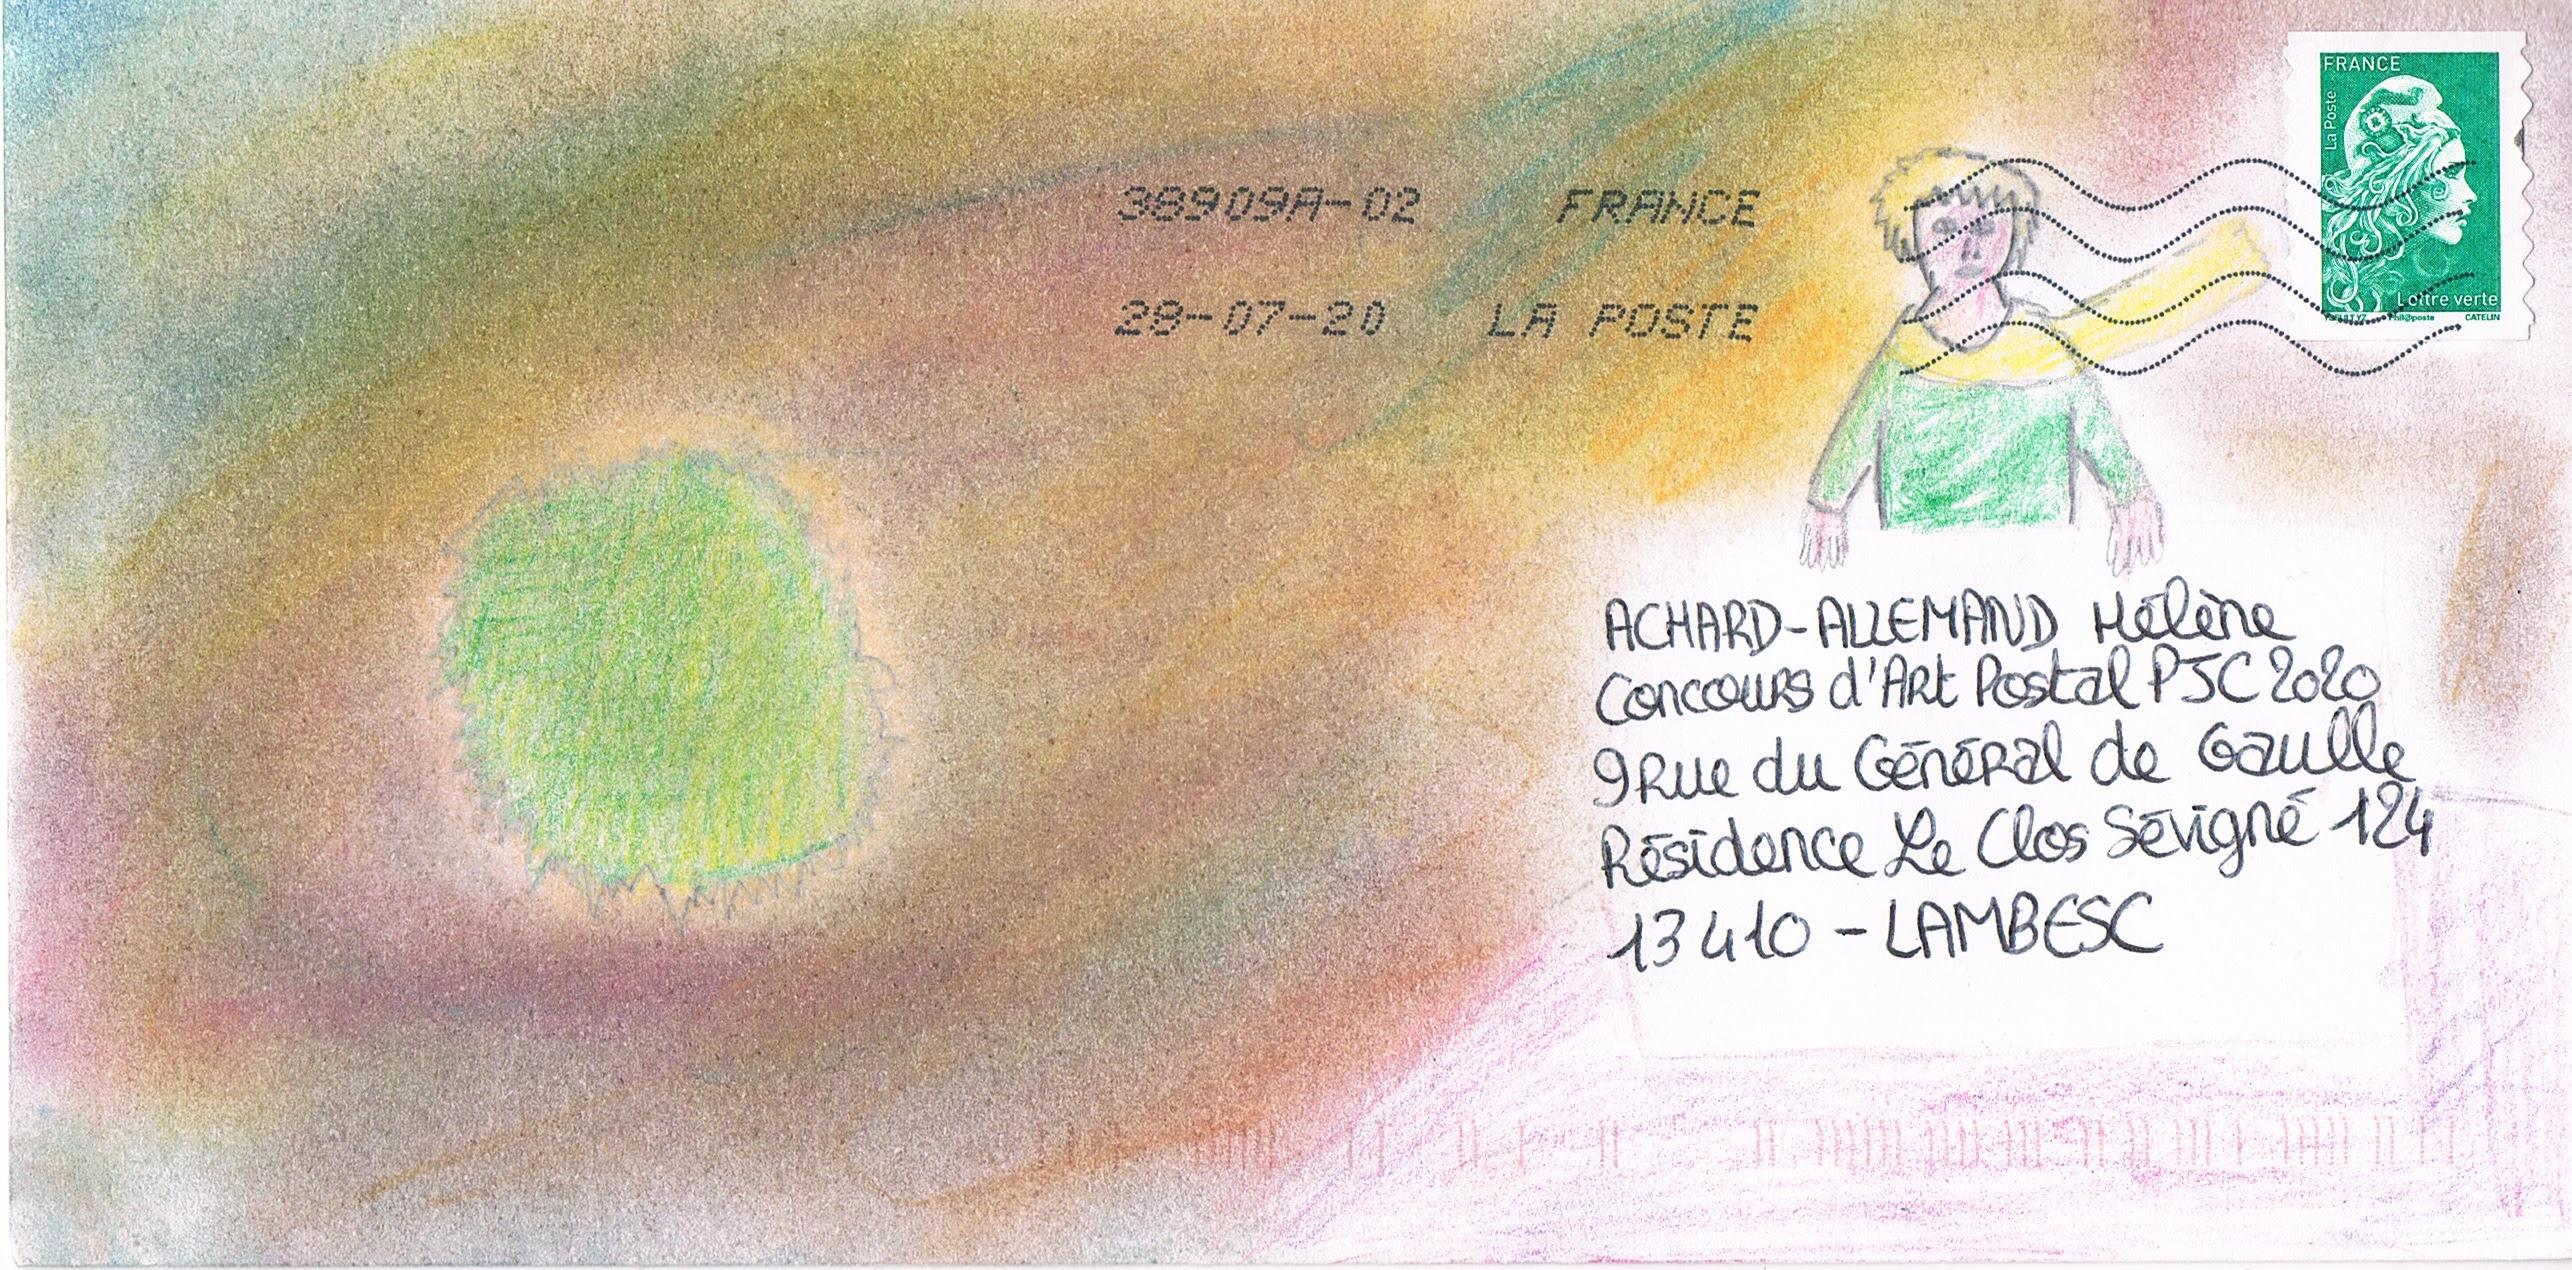 FRANCE
La Poste
Lettre verte
Phil@poste CATELIN
38909A-02 FRANCE
28-07-20 LA POSTE
ACHARD-ALLEMAND Hélène
Concours d'Art Postal PJC 2020
9 Rue du Général de Gaulle
Résidence Le Clos Sévigné 124
13410 - LAMBESC